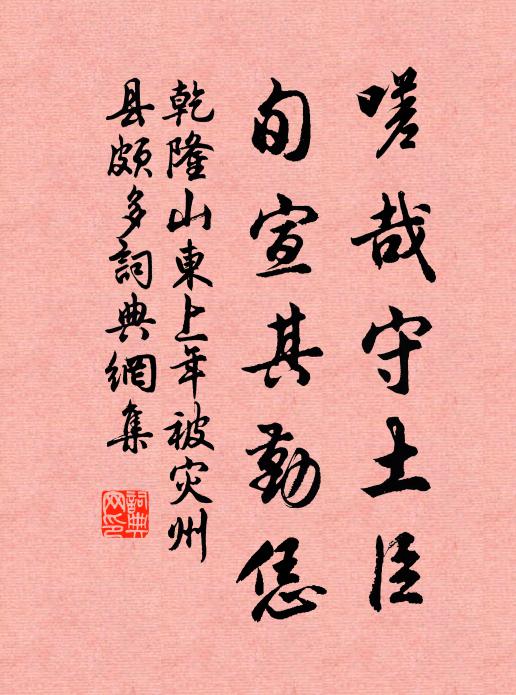 嗟哉守土臣
旬宣其勤恁
乾隆山東上年被灾州
县頗多詞典網集
詞典
网印